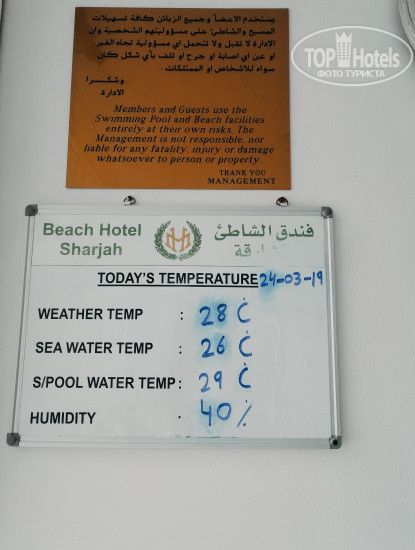 TOP Hotels
ФОТО ТУРИСТА
يستخدم الاعضأ وجميع الزبائن كافة تسهيلات
المسبح والشاطئ على مسؤوليتهم الشخصية وان
الادارة لا تقبل ولا تتحمل اي مسؤولية تجاه الغير
او عن اي اصابة او جرح او تلف بأي شكل كان
سواء للأشخاص او الممتلكات .
وشكرا
الادارة
Members and Guests use the
Swimming Pool and Beach facilities
entirely at their own risks. The
Management is not responsible, nor
liable for any fatality, injury or damage
whatsoever to person or property
THANK YOU
MANAGEMENT
Beach Hotel فندق الشاطئ
Sharjah
TODAY'S TEMPERATURE 24-03-19
WEATHER TEMP : 28 C
SEA WATER TEMP : 26 C
S/POOL WATER TEMP : 29 C
HUMIDITY : 40 %